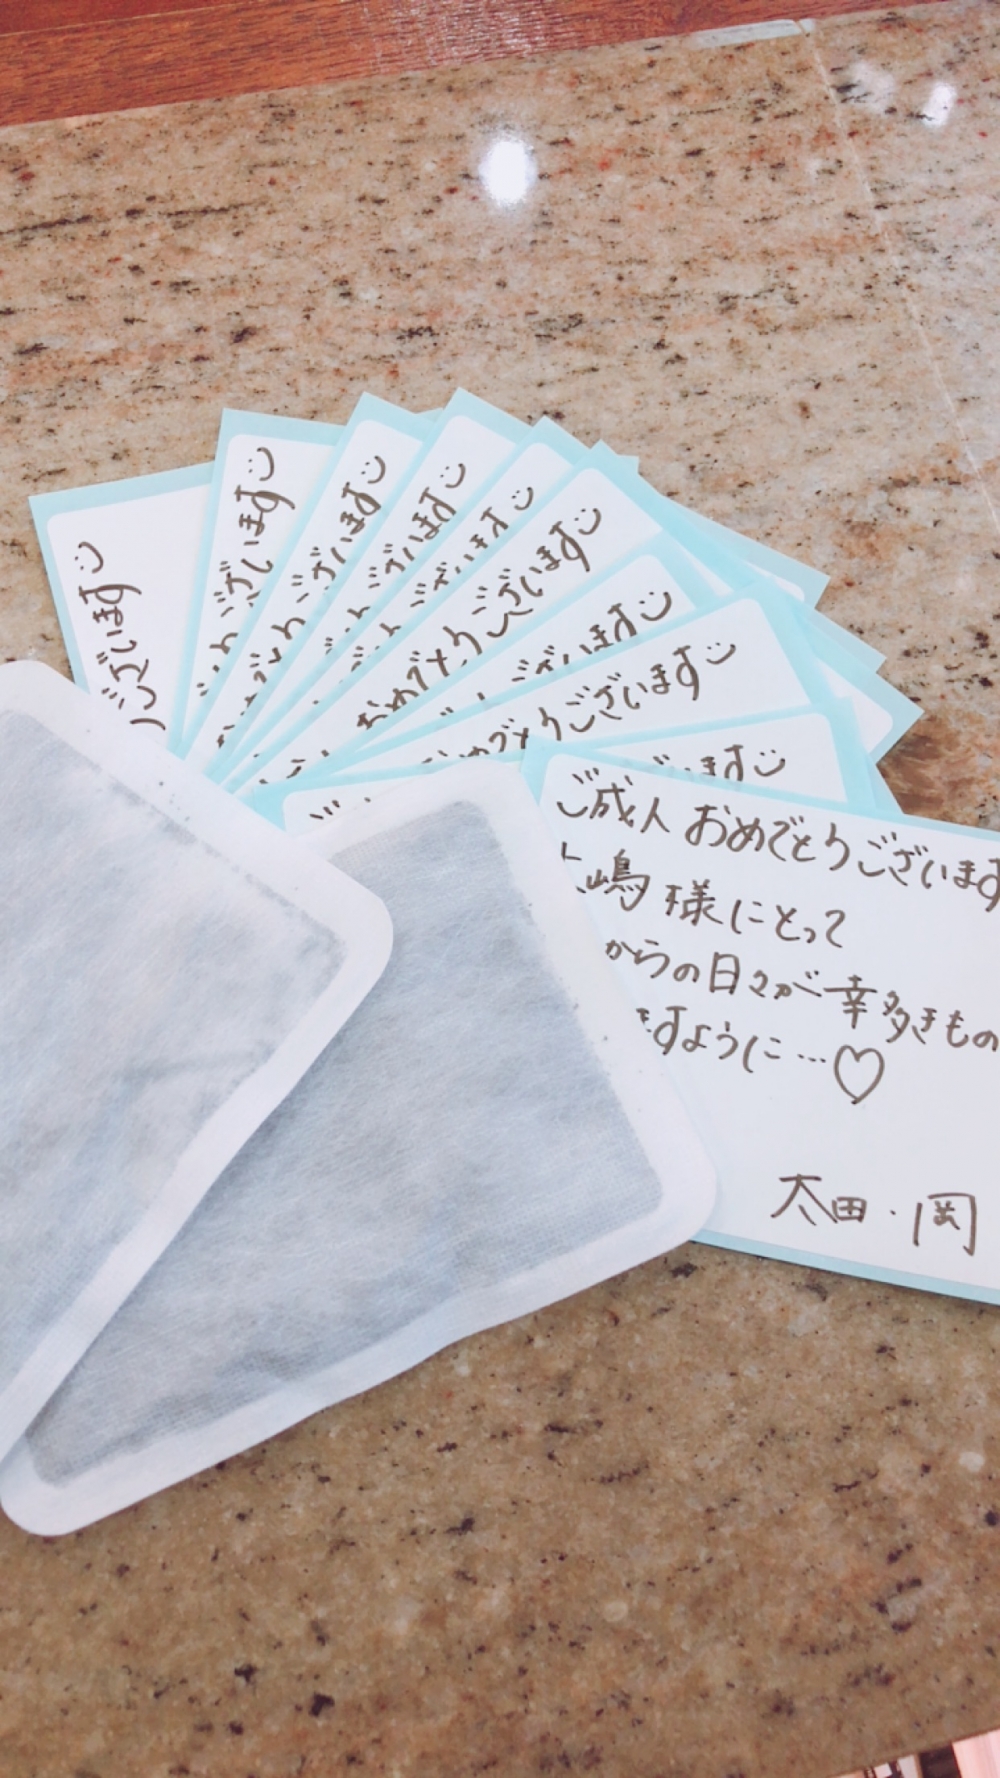 ございます
ございます
ございます
ございます
ございます
おめでとうございます
ございます
おめでとうございます
います
ご成人 おめでとうございます
嶋 様にとって
からの日々が幸多きもの
ますように…♡
太田・岡